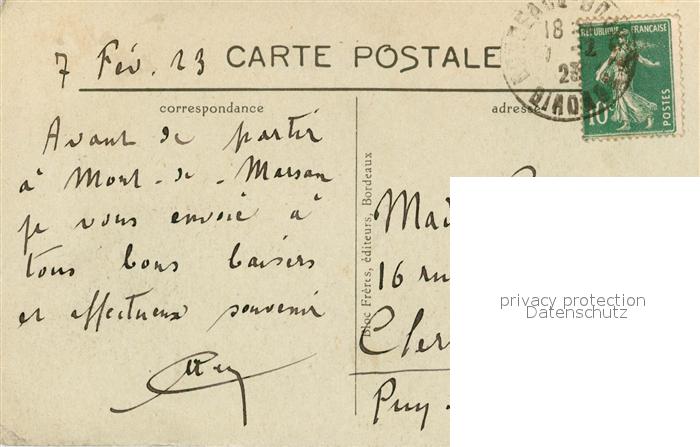 7 Fév. 23
CARTE POSTALE
correspondance
adresse
Avant de partir
à Mont-de-Marsan
je vous envoie à
tous bons baisers
et affectueux souvenir
Bloc Frères, éditeurs, Bordeaux
16 ru
Cler
Puy-
REPUBLIQUE FRANÇAISE
10
POSTES
18
23
GIRONDE
privacy protection
Datenschutz